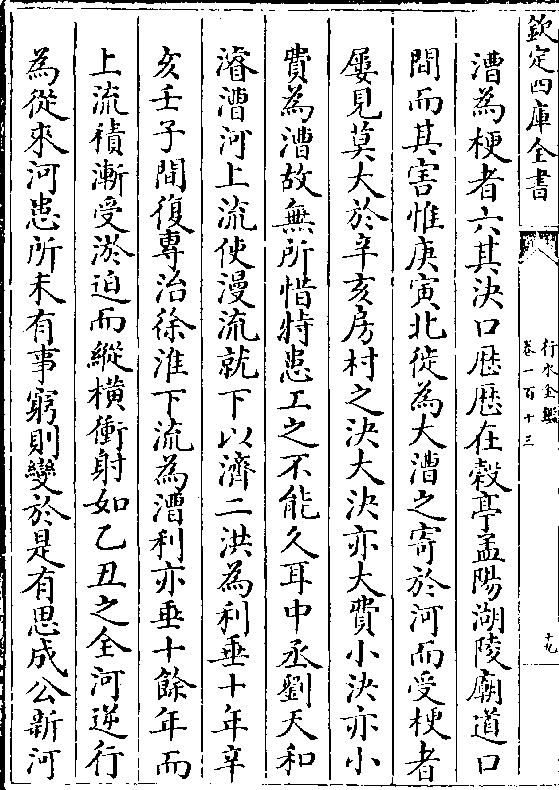 欽定四庫全書
行水金鑑
卷一百十三
十九
漕為梗者六其決口歴歴在榖亭孟陽湖陵廟道口
間而其害惟庚寅北徙為大漕之寄於河而受梗者
屡見莫大於辛亥房村之決大決亦大費小決亦小
費為漕故無所惜特患工之不能久耳中丞劉天和
濬漕河上流使漫流就下以濟二洪為利垂十年辛
亥壬子間復專治徐淮下流為漕利亦垂十餘年而
上流積漸受淤迫而縱横衝射如乙丑之全河逆行
為從來河患所未有事窮則變於是有思成公新河